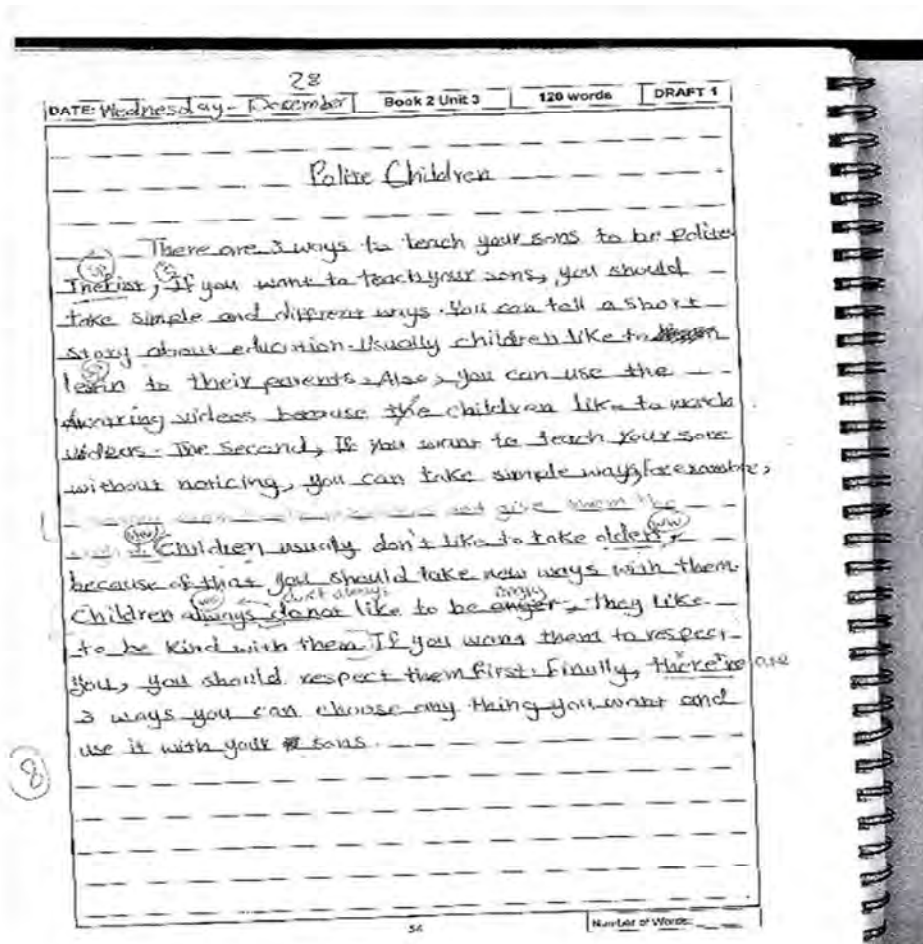 28
DATE: Wednesday - December Book 2 Unit 3 120 words DRAFT 1
Polite Children
There are 3 ways to teach your sons to be Polite
SP
The first, If you want to teach your sons, you should
take simple and different ways. You can tell a short
story about education. Usually children like to
to their parents. Also, you can use the
videos because the children like to watch
videos. The second, If you want to teach your sons
without noticing, you can take simple ways, for example,
and give them the
Children usually don't like to take olders,
WW
because of that you should take new ways with them.
don't always angry
Children always do not like to be anger, They like
to be kind with them. If you want them to respect
you, you should respect them first. Finally, there're are
3 ways you can choose any thing you want and
use it with your sons.
8
54
Number of Words: